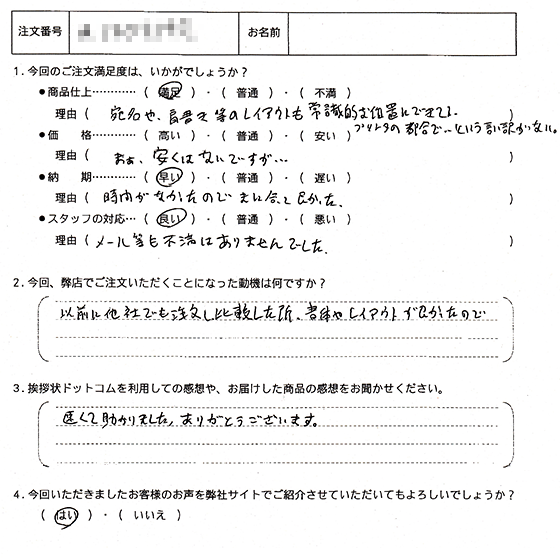 注文番号
お名前
1. 今回のご注文満足度は、いかがでしょうか?
●商品仕上…………( 満足 )・( 普通 )・( 不満 )
理由( 宛名や、肩書き等のレイアウトも常識的な位置にできてる。 )
プリンタの都合で…という言い訳がない。
●価 格…………( 高い )・( 普通 )・( 安い )
理由( まぁ、安くはないですが… )
●納 期…………( 早い )・( 普通 )・( 遅い )
理由( 時間がなかったので まに合って良かった。 )
●スタッフの対応…( 良い )・( 普通 )・( 悪い )
理由( メール等も不満はありませんでした。 )
2. 今回、弊店でご注文いただくことになった動機は何ですか?
以前に他社でも注文し比較した所、書体やレイアウトが良かったので
3. 挨拶状ドットコムを利用しての感想や、お届けした商品の感想をお聞かせください。
速くて助かりました。ありがとうございます。
4. 今回いただきましたお客様のお声を弊社サイトでご紹介させていただいてもよろしいでしょうか?
( はい )・( いいえ )